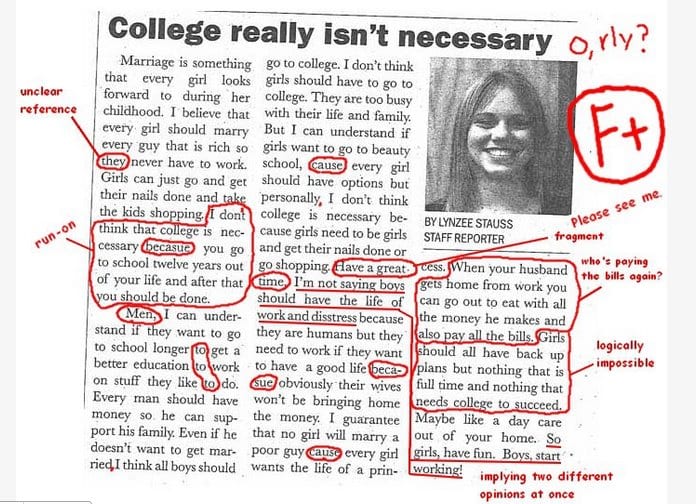 College really isn't necessary
o, rly?
F+
Please see me.
unclear
reference
run-on
Marriage is something
that every girl looks
forward to during her
childhood. I believe that
every girl should marry
every guy that is rich so
they never have to work.
Girls can just go and get
their nails done and take
the kids shopping. I don't
think that college is nec-
cessary becasue you go
to school twelve years out
of your life and after that
you should be done.
Men, I can under-
stand if they want to go
to school longer to get a
better education to work
on stuff they like to do.
Every man should have
money so he can sup-
port his family. Even if he
doesn't want to get mar-
ried,I think all boys should
go to college. I don't think
girls should have to go to
college. They are too busy
with their life and family.
But I can understand if
girls want to go to beauty
school, cause every girl
should have options but
personally, I don't think
college is necessary be-
cause girls need to be girls
and get their nails done or
go shopping. Have a great
time. I'm not saying boys
should have the life of
work and disstress because
they are humans but they
need to work if they want
to have a good life beca-
sue obviously their wives
won't be bringing home
the money. I guarantee
that no girl will marry a
poor guy cause every girl
wants the life of a prin-
BY LYNZEE STAUSS
STAFF REPORTER
fragment
cess. When your husband
gets home from work you
can go out to eat with all
the money he makes and
also pay all the bills. Girls
should all have back up
plans but nothing that is
full time and nothing that
needs college to succeed.
Maybe like a day care
out of your home. So
girls, have fun. Boys, start
working!
who's paying
the bills again?
logically
impossible
implying two different
opinions at once